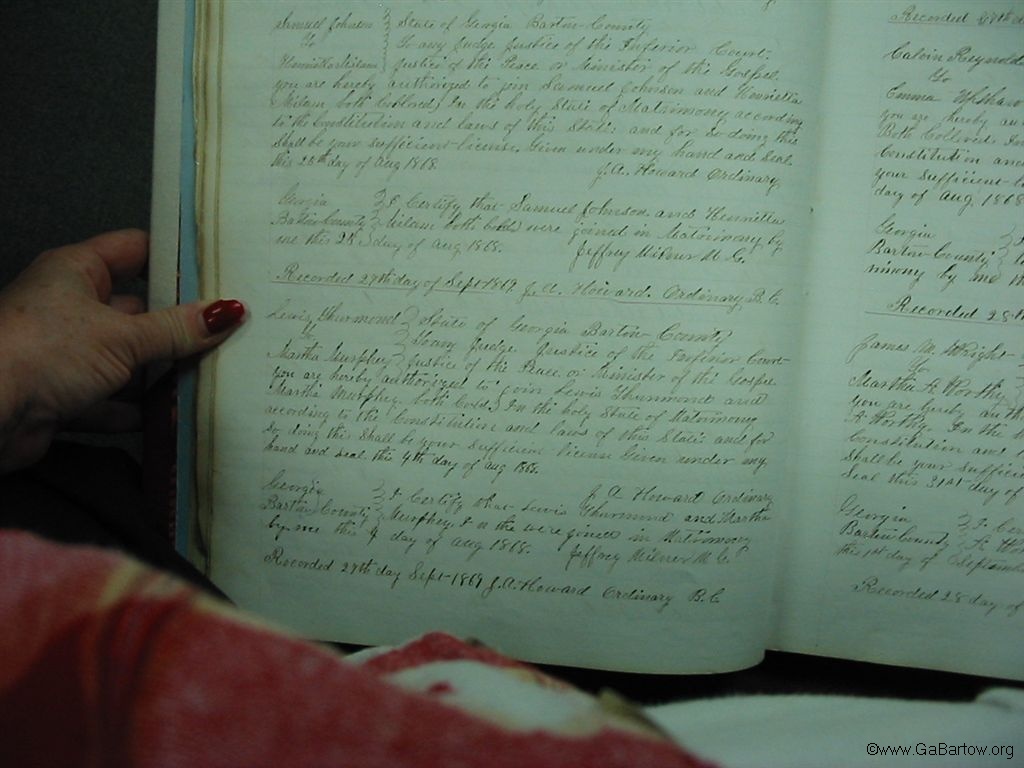 Samuel Johnson } State of Georgia Bartow County
To } To any Judge Justice of the Inferior Court
Henrietta Milam } Justice of the Peace or Minister of the Gospel
you are hereby authorized to join Samuel Johnson and Henrietta
Milam both Colored, In the holy State of Matrimony according
to the Constitution and laws of this State; and for so doing this
Shall be your sufficient License, Given under my hand and Seal
this 28th day of Aug 1868. J. A. Howard Ordinary
Georgia } I Certify that Samuel Johnson and Henrietta
Bartow County } Milam both Cold were joined in Matrimony by
me this 28 day of Aug 1868. Jeffrey Milner M. G.
Recorded 27th day of Sept 1869 J. A. Howard. Ordinary, B. C.
Lewis Thurmond } State of Georgia Bartow County
To } To any Judge Justice of the Inferior Court
Martha Murphey } Justice of the Peace or Minister of the Gospel
you are hereby authorized to join Lewis Thurmond and
Martha Murphey both Cold. In the holy State of Matrimony
according to the Constitution and laws of this State and for
So doing this Shall be your Sufficient License Given under my
hand and Seal this 4th day of Aug 1868.
J A Howard Ordinary
Georgia } I Certify that Lewis Thurmond and Martha
Bartow County } Murphey were joined in Matrimony
by me this 4 day of Aug 1868. Jeffrey Milner M. G.
Recorded 27th day Sept 1869 J. A. Howard Ordinary B. C.
Recorded 27th d
Calvin Reynold
To
Emma Upshaw
you are hereby au
Both Collored. In
Constitution and
your Sufficient L
day of Aug 1868
Georgia
Bartow County
mony by me
Recorded 28th
James M. Wright
To
Martha A Worthy
you are hereby auth
A Worthy. In the h
Constitution and
Shall be your Sufficie
Seal this 31st day of
Georgia } I Cer
Bartow County } A Wor
this 1st day of Septem
Recorded 28 day of
©www.GaBartow.org